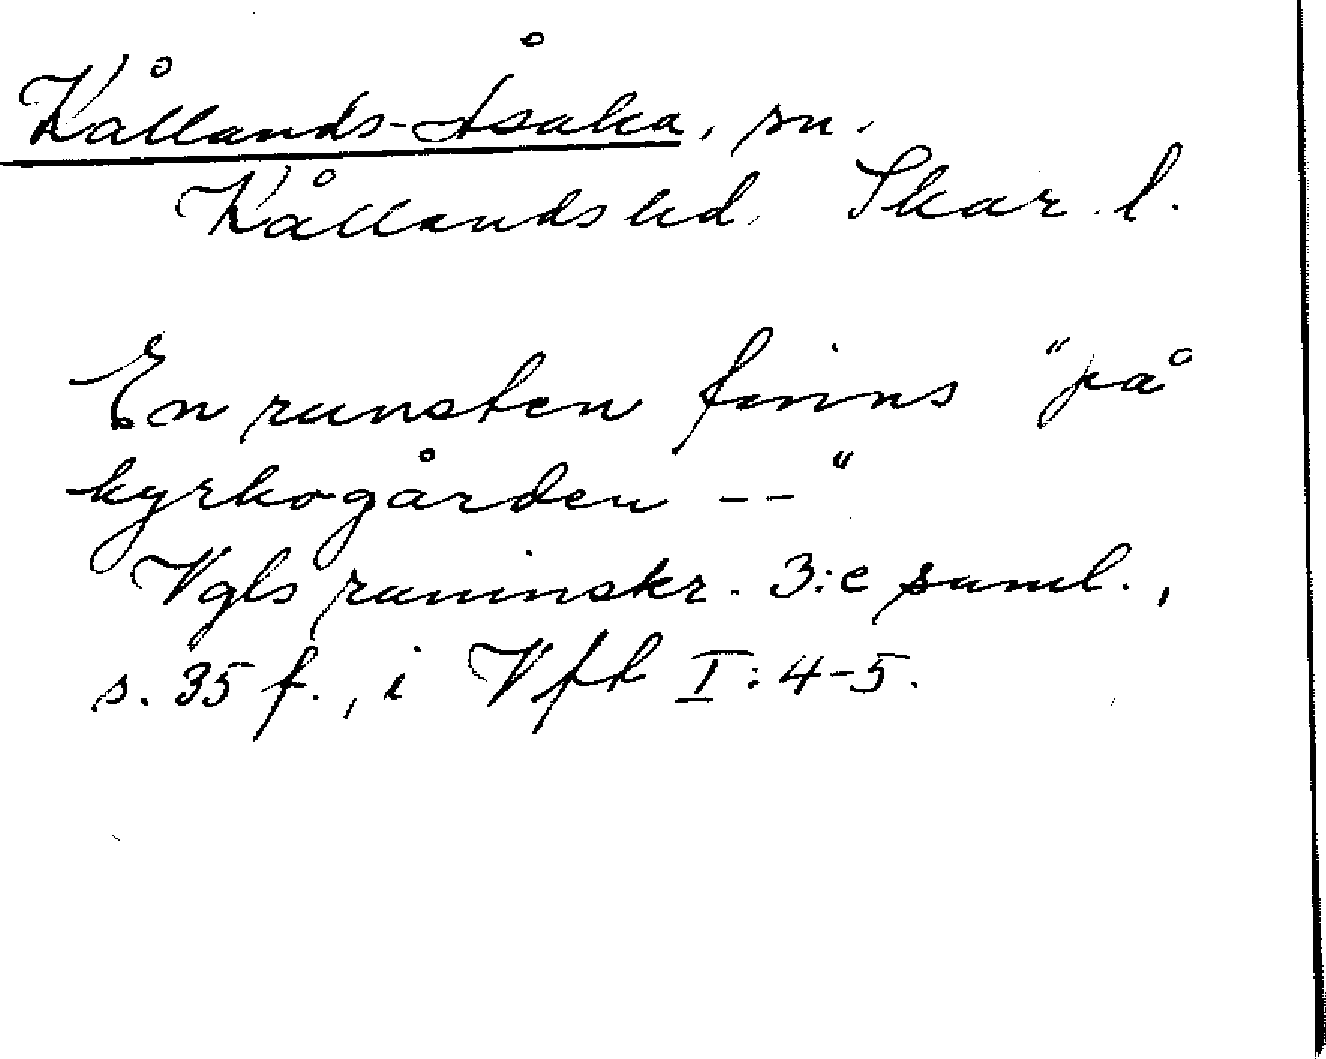 Kållands-Åsaka, sn.
Kållands hd. Skar. l.
En runsten finns "på
kyrkogården --"
Vgls runinskr. 3:e saml.,
s. 35 f., i Vft I:4-5.